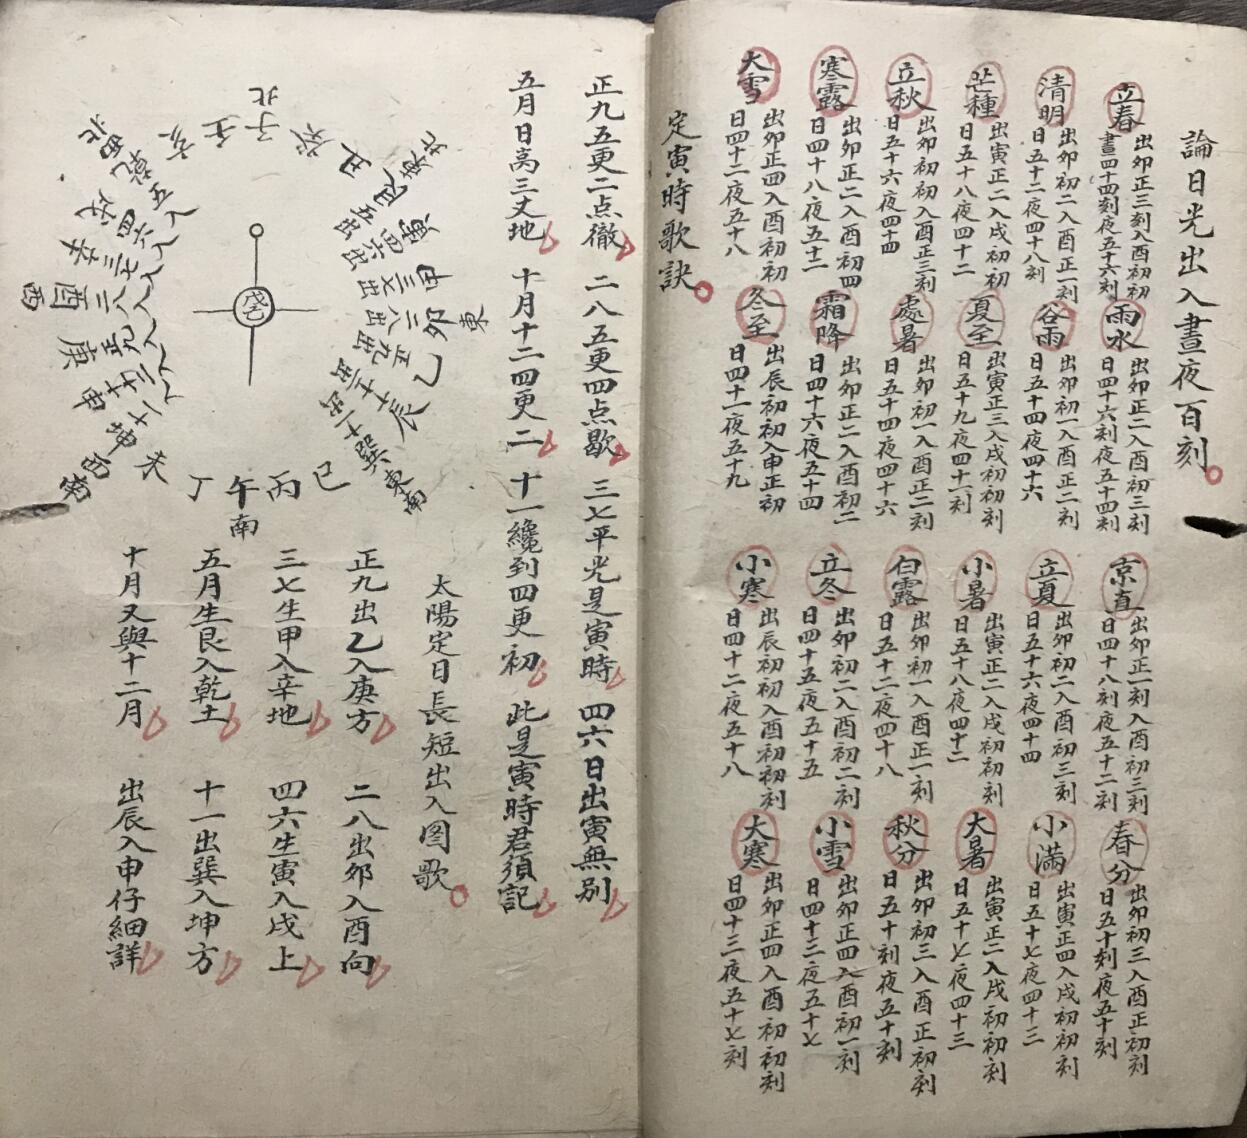 論日光出入晝夜百刻
立春
出卯正三刻入酉初
晝四十四刻夜五十六刻
雨水
出卯正二入酉初三刻
日四十六刻夜五十四刻
京直
出卯正一刻入酉初三刻
日四十八刻夜五十二刻
春分
出卯初三入酉正初刻
日五十刻夜五十刻
清明
出卯初二入酉正一刻
日五十二夜四十八刻
谷雨
出卯初一入酉正二刻
日五十四夜四十六
立夏
出卯初二入酉初三刻
日五十六夜四十四
小满
出寅正四入戍初初刻
日五十七夜四十三
芒種
出寅正二入戍初初
日五十八夜四十二
夏至
出寅正三入戍初初刻
日五十九夜四十一刻
小暑
出寅正二入戍初初刻
日五十八夜四十二
大暑
出寅正二入戍初初刻
日五十七夜四十三
立秋
出卯初初入酉正三刻
日五十六夜四十四
處暑
出卯初一入酉正二刻
日五十四夜四十六
白露
出卯初一入酉正一刻
日五十二夜四十八
秋分
出卯初三入酉正初刻
日五十刻夜五十刻
寒露
出卯正二入酉初四
日四十八夜五十二
霜降
出卯正二入酉初二
日四十六夜五十四
立冬
出卯初二入酉初二刻
日四十五夜五十五
小雪
出卯正四入酉初一刻
日四十三夜五十七
大雪
出卯正四入酉初初
日四十二夜五十八
冬至
出辰初初入申正初
日四十一夜五十九
小寒
出辰初初入酉初初刻
日四十二夜五十八
大寒
出卯正四入酉初初刻
日四十三夜五十七刻
定寅時歌訣
正九五更二点徹 二八五更四点歇 三七平光是寅時 四六日出寅無别
五月日高三丈地 十月十二四更二 十一纔到四更初 此是寅時君須記
太陽定日長短出入图歌
正九出乙入庚方 二八出卯入酉向
三七生甲入辛地 四六生寅入戍上
五月生艮入乾土 十一出巽入坤方
十月又與十二月 出辰入申仔細詳
北
子
癸
丑
東北
艮 五出
寅 四六出
甲 三七出
卯 二八出
東
乙 正九出
辰 十十二出
巽 十一出
東南
巳
丙
午
南
丁
未
坤 十一入
西南
申 十十二入
庚 正九入
酉 二八入
西
辛 三七入
戍 四六入
乾 五入
西北
亥
壬
戊己